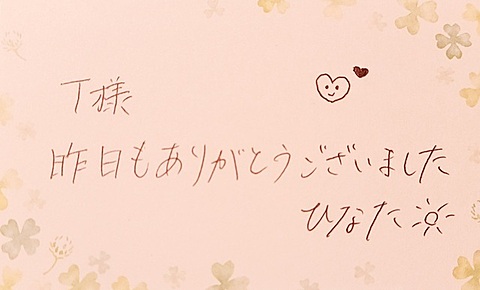 T様
昨日もありがとうございました
ひなた